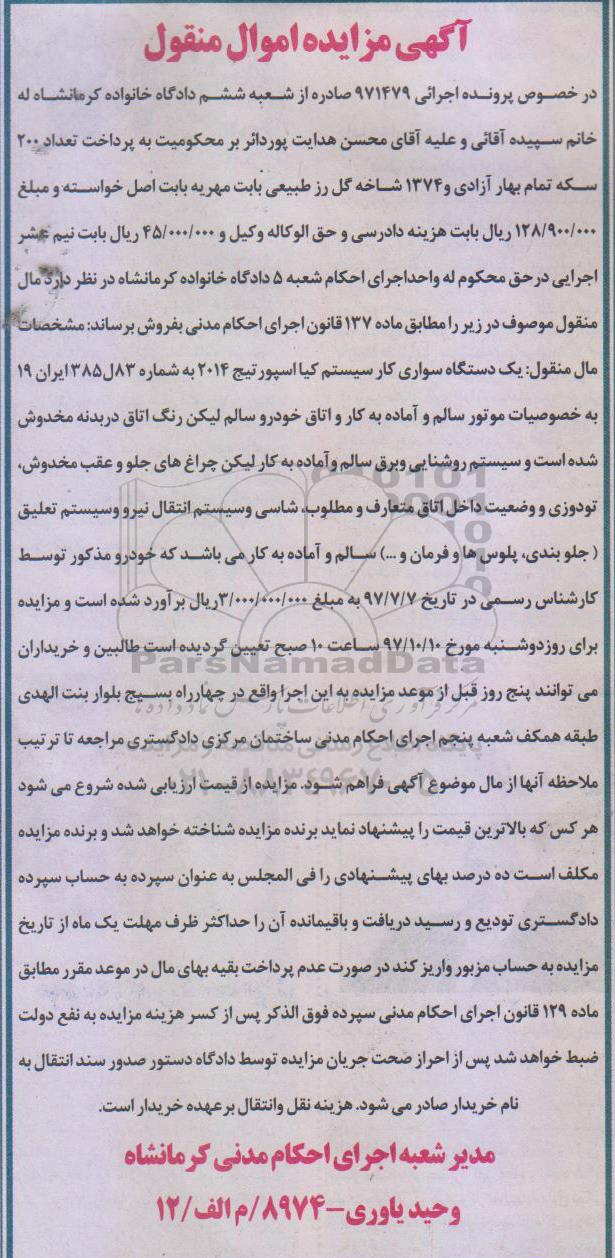 آگهی مزایده اموال منقول
در خصوص پرونده اجرائی ۹۷۱۴۷۹ صادره از شعبه ششم دادگاه خانواده کرمانشاه له
خانم سپیده آقائی و علیه آقای محسن هدایت پوردائر بر محکومیت به پرداخت تعداد ۲۰۰
سکه تمام بهار آزادی و۱۳۷۴ شاخه گل رز طبیعی بابت مهریه بابت اصل خواسته و مبلغ
۱۲۸/۹۰۰/۰۰۰ ریال بابت هزینه دادرسی و حق الوکاله وکیل و ۴۵/۰۰۰/۰۰۰ ریال بابت نیم عشر
اجرایی درحق محکوم له واحداجرای احکام شعبه ۵ دادگاه خانواده کرمانشاه در نظر دارد مال
منقول موصوف در زیر را مطابق ماده ۱۳۷ قانون اجرای احکام مدنی بفروش برساند: مشخصات
مال منقول: یک دستگاه سواری کار سیستم کیا اسپورتیج ۲۰۱۴ به شماره ۸۳ل۳۸۵ ایران ۱۹
به خصوصیات موتور سالم و آماده به کار و اتاق خودرو سالم لیکن رنگ اتاق دربدنه مخدوش
شده است و سیستم روشنایی وبرق سالم وآماده به کار لیکن چراغ های جلو و عقب مخدوش،
تودوزی و وضعیت داخل اتاق متعارف و مطلوب، شاسی وسیستم انتقال نیرو وسیستم تعلیق
( جلو بندی، پلوس ها و فرمان و ...) سالم و آماده به کار می باشد که خودرو مذکور توسط
کارشناس رسمی در تاریخ ۹۷/۷/۷ به مبلغ ۳/۰۰۰/۰۰۰/۰۰۰ریال برآورد شده است و مزایده
برای روزدوشنبه مورخ ۹۷/۱۰/۱۰ ساعت ۱۰ صبح تعیین گردیده است طالبین و خریداران
ParsNamadData
می توانند پنج روز قبل از موعد مزایده به این اجرا واقع در چهارراه بسیج بلوار بنت الهدی
طبقه همکف شعبه پنجم اجرای احکام مدنی ساختمان مرکزی دادگستری مراجعه تا ترتیب
ملاحظه آنها از مال موضوع آگهی فراهم شود. مزایده از قیمت ارزیابی شده شروع می شود
هر کس که بالاترین قیمت را پیشنهاد نماید برنده مزایده شناخته خواهد شد و برنده مزایده
مکلف است ده درصد بهای پیشنهادی را فی المجلس به عنوان سپرده به حساب سپرده
دادگستری تودیع و رسید دریافت و باقیمانده آن را حداکثر ظرف مهلت یک ماه از تاریخ
مزایده به حساب مزبور واریز کند در صورت عدم پرداخت بقیه بهای مال در موعد مقرر مطابق
ماده ۱۲۹ قانون اجرای احکام مدنی سپرده فوق الذکر پس از کسر هزینه مزایده به نفع دولت
ضبط خواهد شد پس از احراز صحت جریان مزایده توسط دادگاه دستور صدور سند انتقال به
نام خریدار صادر می شود. هزینه نقل وانتقال برعهده خریدار است.
مدیر شعبه اجرای احکام مدنی کرمانشاه
وحید یاوری-۸۹۷۴/م الف/۱۲